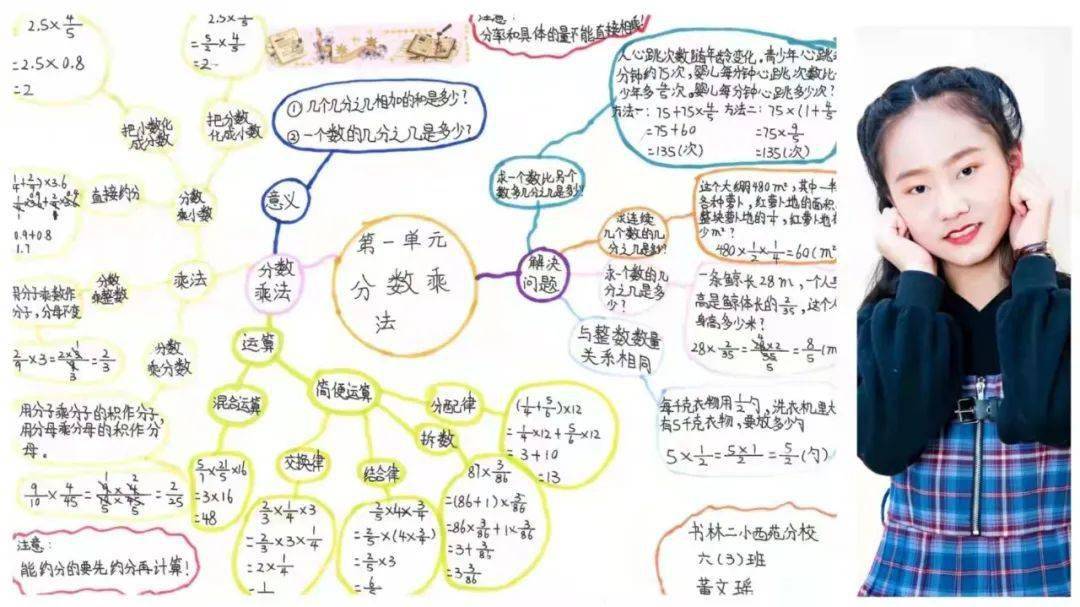 2.5×4/5
=2.5×0.8
=2
把小数化
成分数
2.5×4/5
=5/2×4/5
=2
把分数
化成小数
直接约分
0.9+0.8
1.7
分数
乘小数
乘法
分数
乘整数
分子,分母不变
2/9×3=2×3/9=2/3
分数
乘分数
用分子乘分子的积作分子,
用分母乘分母的积作分
母。
9/10×4/45=9×4/10×45=2/25
注意:
能约分的要先约分再计算!
① 几个几分之几相加的和是多少?
② 一个数的几分之几是多少?
意义
分数
乘法
第一单元
分数乘
法
运算
混合运算
5/7×21/5×16
=3×16
=48
简便运算
交换律
2/3×1/4×3
=2/3×3×1/4
=2×1/4
结合律
2/5×4×3/4
=2/5×(4×3/4)
=2/5×3
拆数
87×3/86
=(86+1)×3/86
=86×3/86+1×3/86
=3+3/86
=3 3/86
分配律
(1/4+5/6)×12
=1/4×12+5/6×12
=3+10
=13
注意:
分率和具体的量不能直接相乘!
解决
问题
求一个数比另个
数多几分之几是多少?
人心跳次数随年龄变化。青少年心跳
分钟约75次,婴儿每分钟心跳次数比
少年多4/5次。婴儿每分钟心跳多少次?
方法一:75+75×4/5 方法二:75×(1+4/5
=75+60 =75×9/5
=135(次) =135(次)
求连续
几个数的几
分之几是多少?
这个大棚480m²,其中一
各种萝卜,红萝卜地的面积
整块萝卜地的1/4,红萝卜地
少m²?
480×1/2×1/4=60(m²
求一个数的几
分之几是多
少?
一条鲸长28m,一个人
高是鲸体长的2/35,这个人
身高多少米?
28×2/35=28×2/35=8/5(m
与整数数量
关系相同
每千克衣物用1/2勺,洗衣机里
有5千克衣物,要放多少勺
5×1/2=5×1/2=5/2(勺)
书林二小西苑分校
六(3)班
董文瑶